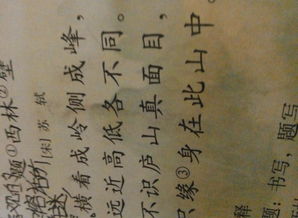 题①西林②壁
[宋] 苏 轼
横看成岭侧成峰，
远近高低各不同。
不识庐山真面目，
只缘③身在此山中。
释
题：书写，题写